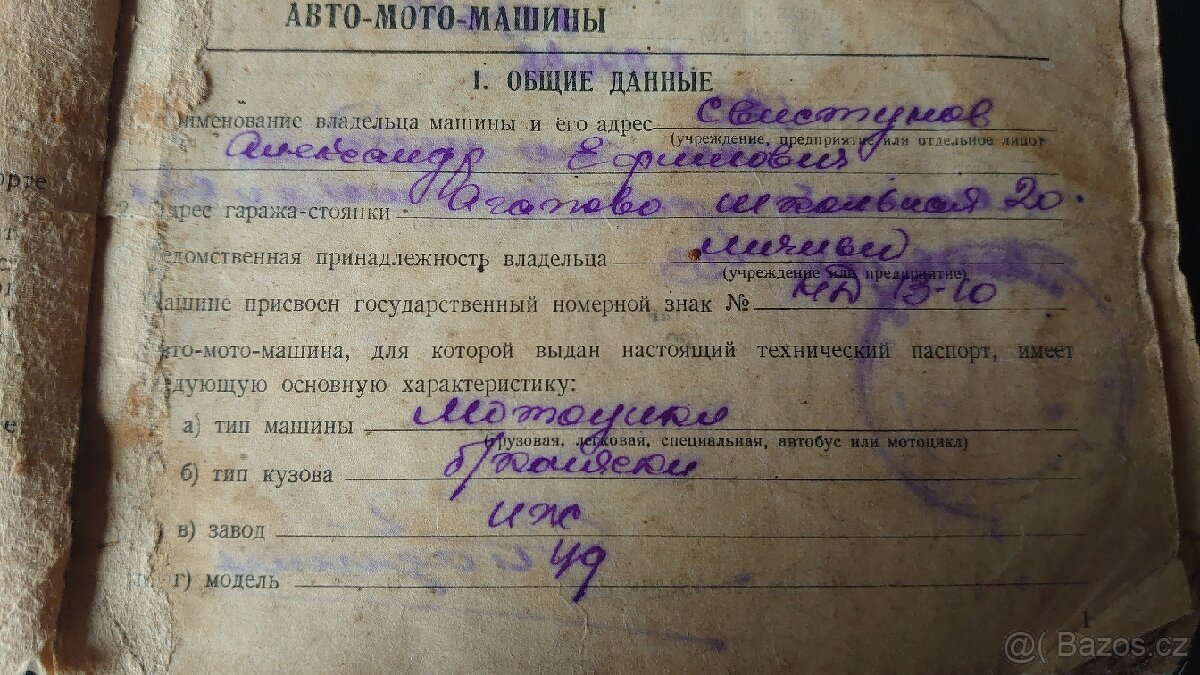 АВТО-МОТО-МАШИНЫ
I. ОБЩИЕ ДАННЫЕ
именование владельца машины и его адрес Свистунов
(учреждение, предприятие или отдельное лицо)
Александр Ефимович
2. Адрес гаража-стоянки Агапово школьная 20.
едомственная принадлежность владельца личный
(учреждение или предприятие)
Машине присвоен государственный номерной знак № 13-10
то-мото-машина, для которой выдан настоящий технический паспорт, имеет
дующую основную характеристику:
а) тип машины Мотоцикл
(грузовая, легковая, специальная, автобус или мотоцикл)
б) тип кузова б/коляски
в) завод иж
г) модель 49
1
@( Bazos.cz